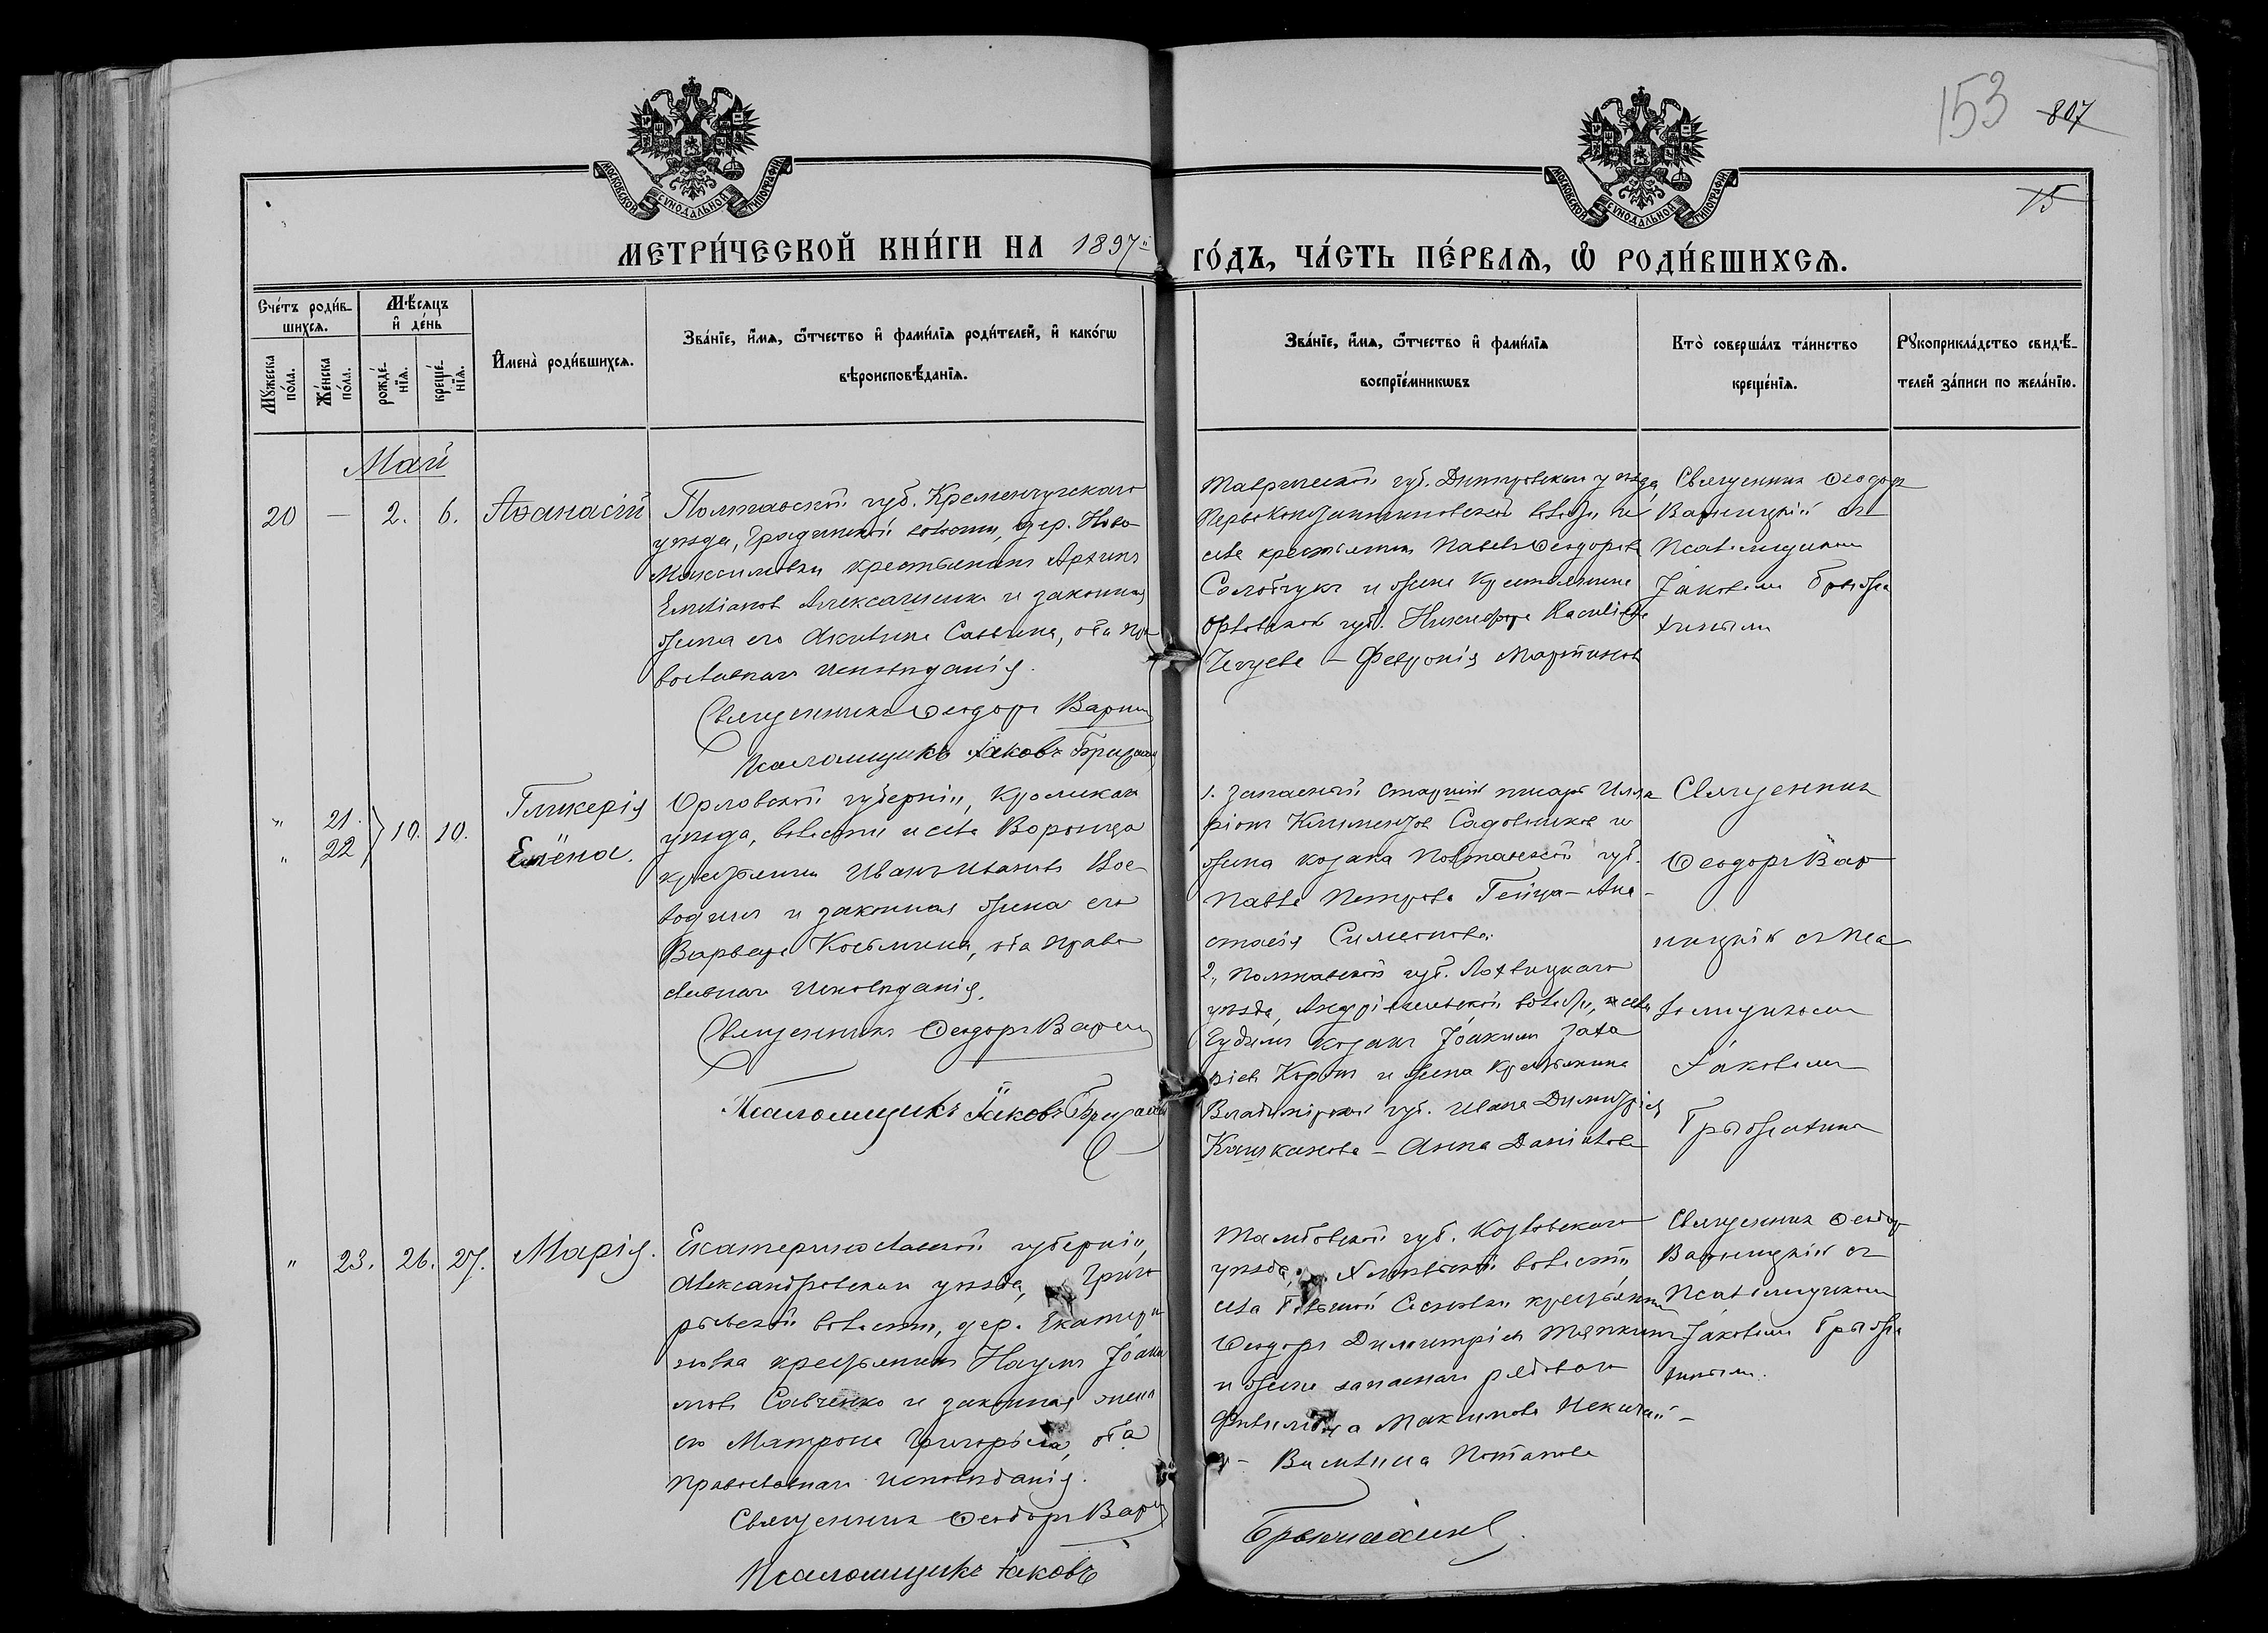 153 807
15
МОСКОВСКОЙ СѴНОДАЛЬНОЙ ТИПОГРАФІИ
МОСКОВСКОЙ СѴНОДАЛЬНОЙ ТИПОГРАФІИ
МЕТРИ́ЧЕСКОЙ КНИ́ГИ НА 1897 ГО́ДЪ, ЧА́СТЬ ПЕ́РВАѦ, Ѽ РОДИ́ВШИХСѦ.
Сче́тъ роди́в-
шихсѧ.
Мѣ́сѧцъ
и҆ де́нь
Мꙋ́жеска по́ла.
Же́нска по́ла.
рожде́-
нїѧ.
креще́-
нїѧ.
И҆мена̀ роди́вшихсѧ.
Зва́нїе, и҆́мѧ, ѻ҆́тчество и҆ фами́лїѧ роди́телей, и҆ како́гѡ
вѣроисповѣ́данїѧ.
Зва́нїе, и҆́мѧ, ѻ҆́тчество и҆ фами́лїѧ
воспрїе́мникѡвъ
Кто̀ соверша́лъ та́инство
креще́нїѧ.
Рꙋкоприкла́дство свидѣ́-
телей за́писи по жела́нїю.
Май
20 — 2. 6. Аѳанасій
Полтавской губ. Кременчугскаго
уѣзда, Градижской волости, дер. Ново
Максимовки крестьянинъ Архипъ
Емеліановъ и законная
жена его Акилина Саввина, оба пра
вославнаго исповѣданія.
Священникъ Ѳеодоръ Варни
Псаломщикъ Іаковъ
Таврической губ. Днѣпровскаго уѣзда,
Первоконстантиновской волости и
села крестьянинъ Павелъ Ѳеодоровъ
и жена крестьянина
Орловской губ. Никифора Василіева
— Февронія Мартинова
Священникъ Ѳеодоръ
Варницкій съ
Псаломщикомъ
Іаковомъ Брынжа
хинымъ
" 21. 10. 10. Гликерія
" 22 Елена.
Орловской губерніи, Кромскаго
уѣзда, волости и села Воронца
крестьянинъ Иванъ Ивановъ Вое
водинъ и законная жена его
Варвара Косьмина, оба право
славнаго исповѣданія.
Священникъ Ѳеодоръ Варни
Псаломщикъ Іаковъ
1. Запасный старшій писарь Илла
ріонъ Климентовъ Садовниковъ и
жена козака Полтавской губ.
Павла Петрова — Ана
стасія Симеонова.
2., Полтавской губ. Лохвицкаго
уѣзда, волости, и села
козакъ Іоакимъ Заха
ріевъ и жена крестьянина
Владимірской губ. Ивана Димитріева
Кашканова — Анна Даніилова
Священникъ
Ѳеодоръ Вар
ницкій съ Пса
ломщикомъ
Іаковомъ
" 23. 26. 27. Марія.
Екатеринославской губерніи,
Александровскаго уѣзда, Григо
рьевской волости, дер. Екатери
новка крестьянинъ Наумъ Іоан
новъ Савченко и законная жена
его Матрона Григорьева, оба
православнаго исповѣданія.
Священникъ Ѳеодоръ Варн
Псаломщикъ Іаковъ
Тамбовской губ. Козловскаго
уѣзда, волости
села крестьянинъ
Ѳеодоръ Димитріевъ Тяпкинъ
и жена запаснаго рядоваго
Филимона Максимова
— Василиса Потапова
Брынжахинъ
Священникъ Ѳеодор
Варницкій съ
Псаломщикомъ
Іаковомъ Брынжа
хинымъ.